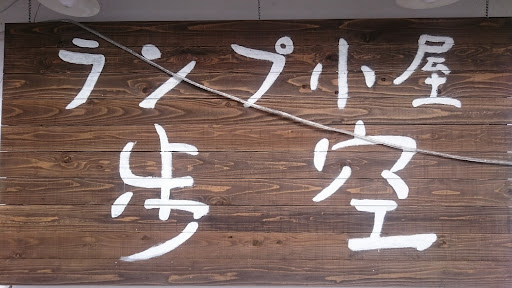 ランプ小屋
歩空